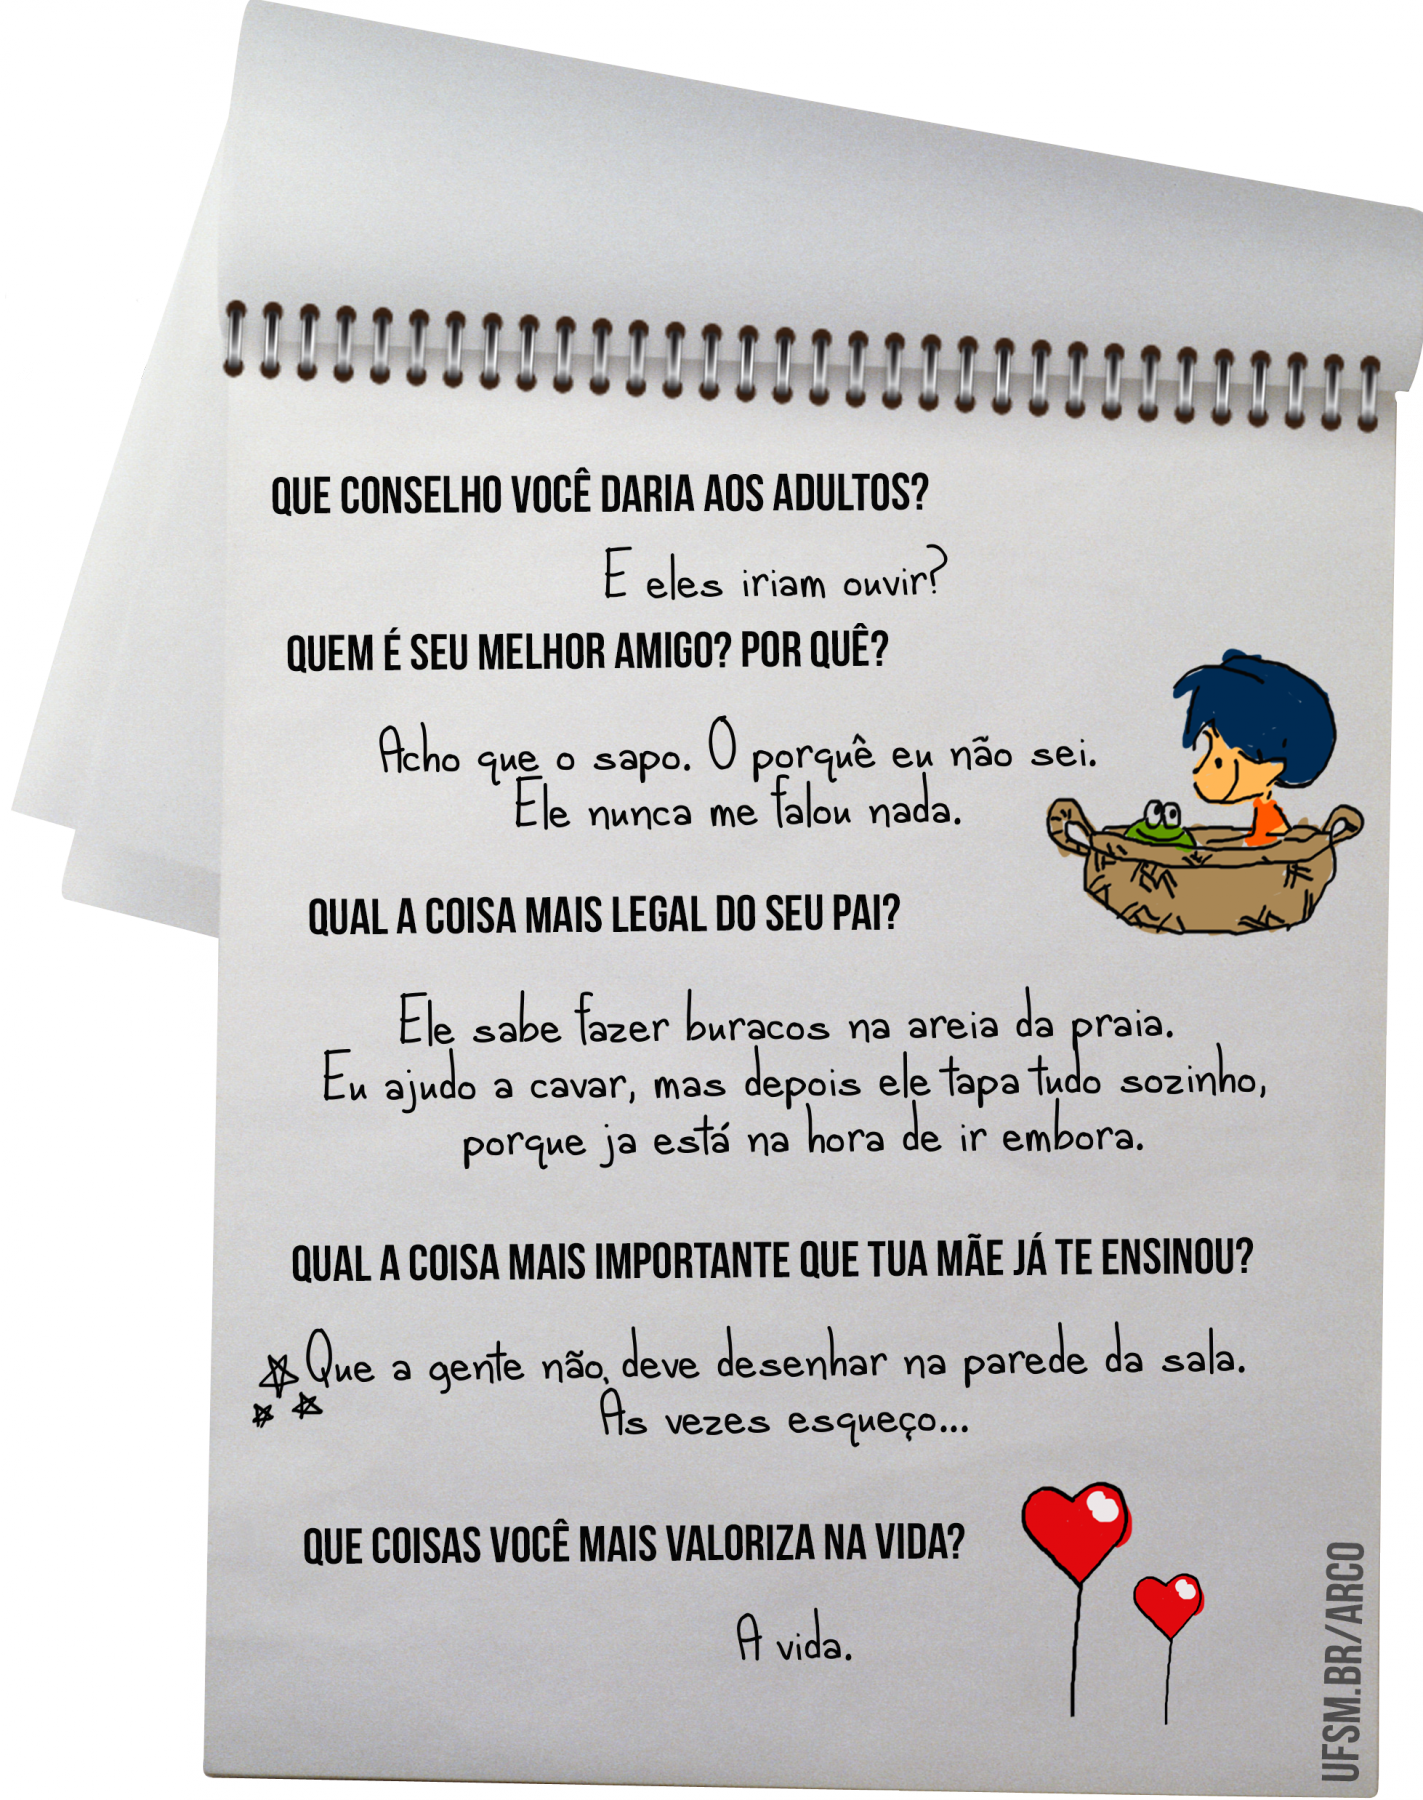 QUE CONSELHO VOCÊ DARIA AOS ADULTOS?
E eles iriam ouvir?
QUEM É SEU MELHOR AMIGO? POR QUÊ?
Acho que o sapo. O porquê eu não sei.
Ele nunca me falou nada.
QUAL A COISA MAIS LEGAL DO SEU PAI?
Ele sabe fazer buracos na areia da praia.
Eu ajudo a cavar, mas depois ele tapa tudo sozinho,
porque ja está na hora de ir embora.
QUAL A COISA MAIS IMPORTANTE QUE TUA MÃE JÁ TE ENSINOU?
Que a gente não deve desenhar na parede da sala.
Às vezes esqueço...
QUE COISAS VOCÊ MAIS VALORIZA NA VIDA?
A vida.
UFSM.BR/ARCO